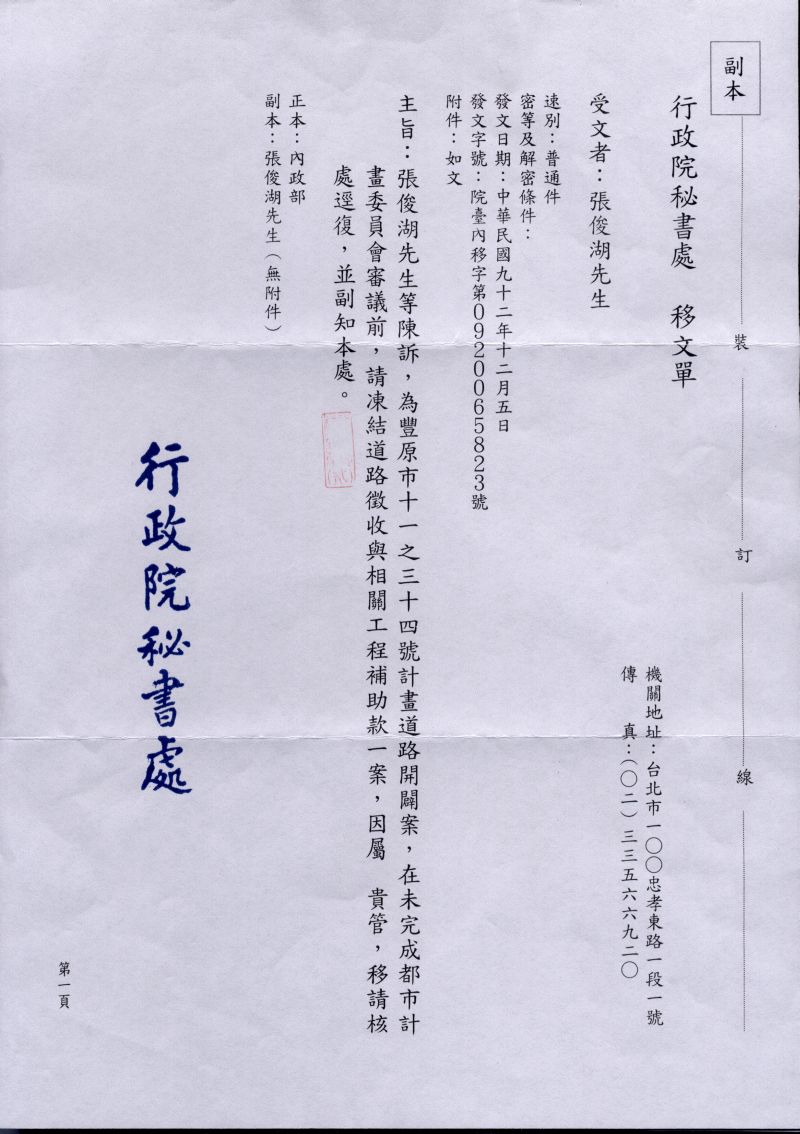 副本
裝
訂
線
行政院秘書處　移文單
機關地址：台北市一〇〇忠孝東路一段一號
傳　　真：（〇二）三三五六六九二〇
受文者：張俊湖先生
速別：普通件
密等及解密條件：
發文日期：中華民國九十二年十二月五日
發文字號：院臺內移字第0920065823號
附件：如文
主旨：張俊湖先生等陳訴，為豐原市十一之三十四號計畫道路開闢案，在未完成都市計
畫委員會審議前，請凍結道路徵收與相關工程補助款一案，因屬　貴管，移請核
處逕復，並副知本處。
正本：內政部
副本：張俊湖先生（無附件）
行政院秘書處
第一頁